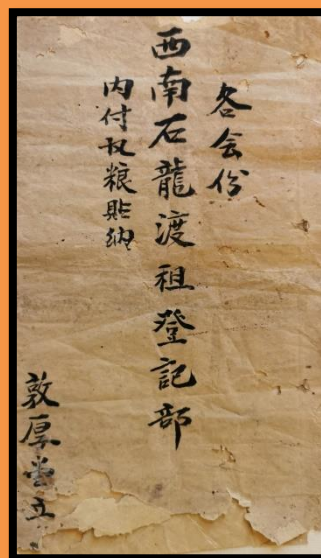 各会份
西南石龍渡租登記部
内付收粮貼納
敦厚堂立